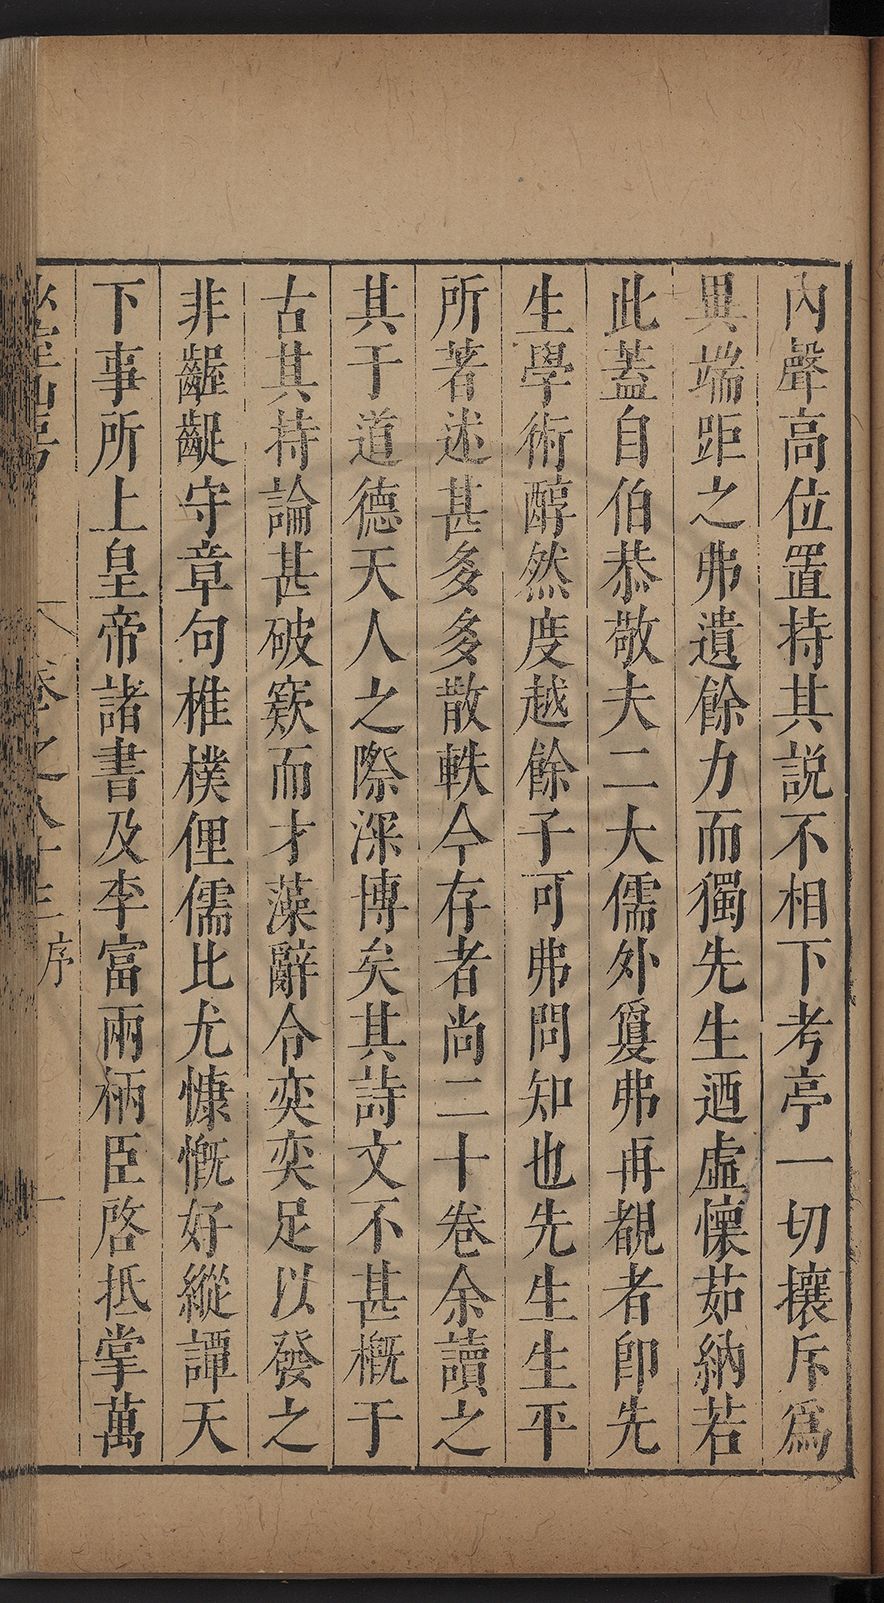 內聲高位置持其説不相下考亭一切攘斥爲
異端距之弗遺餘力而獨先生迺虛懷茹納若
此蓋自伯恭敬夫二大儒外夐弗再覩者卽先
生學術醇然度越餘子可弗問知也先生生平
所著述甚多多散軼今存者尚二十卷余讀之
其于道德天人之際深博矣其詩文不甚概于
古其持論甚破窽而才藻辭令奕奕足以發之
非齷齪守章句椎樸俚儒比尤慷慨好縱譚天
下事所上皇帝諸書及李富兩柄臣啓抵掌萬
卷之八十三 序 一